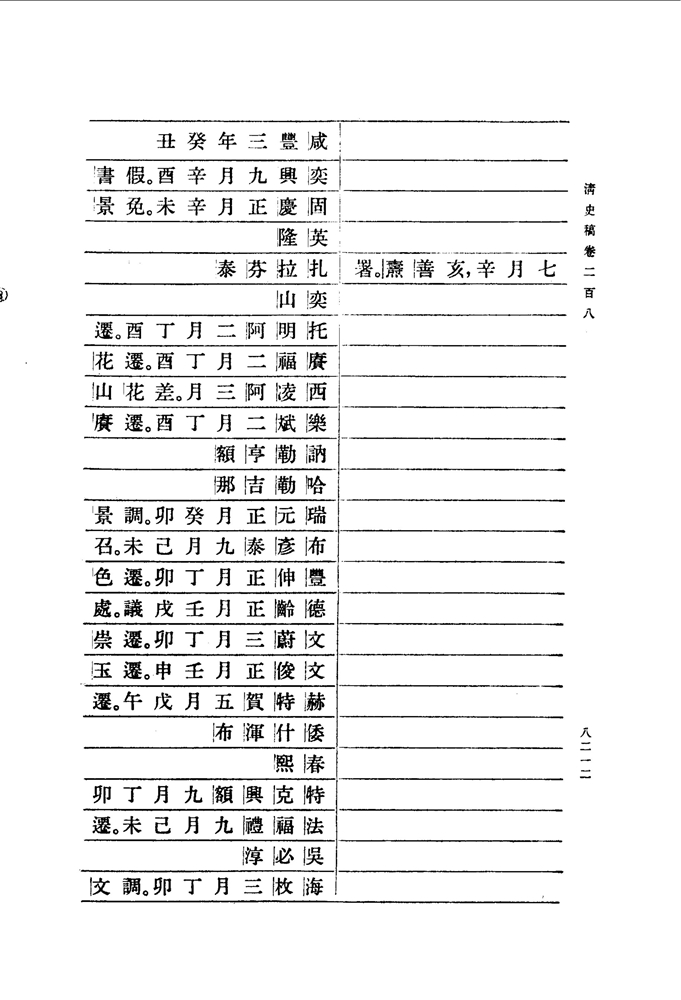 清史稿卷二百八
八二一二
七月辛亥,善燾署。
咸豐三年癸丑
奕興九月辛酉假。書
固慶正月辛未免。景
英隆
扎拉芬泰
奕山
托明阿二月丁酉遷。
賡福二月丁酉遷。花
西凌阿三月差。花山
樂斌二月丁酉遷。賡
訥勒亨額
哈勒吉那
瑞元正月癸卯調。景
布彥泰九月己未召。
豐伸正月丁卯遷。色
德齡正月壬戌議處。
文蔚三月丁卯遷。崇
文俊正月壬申遷。玉
赫特賀五月戊午遷。
倭什渾布
春熙
特克興額九月丁卯
法福禮九月己未遷。
吳必淳
海枚三月丁卯調。文